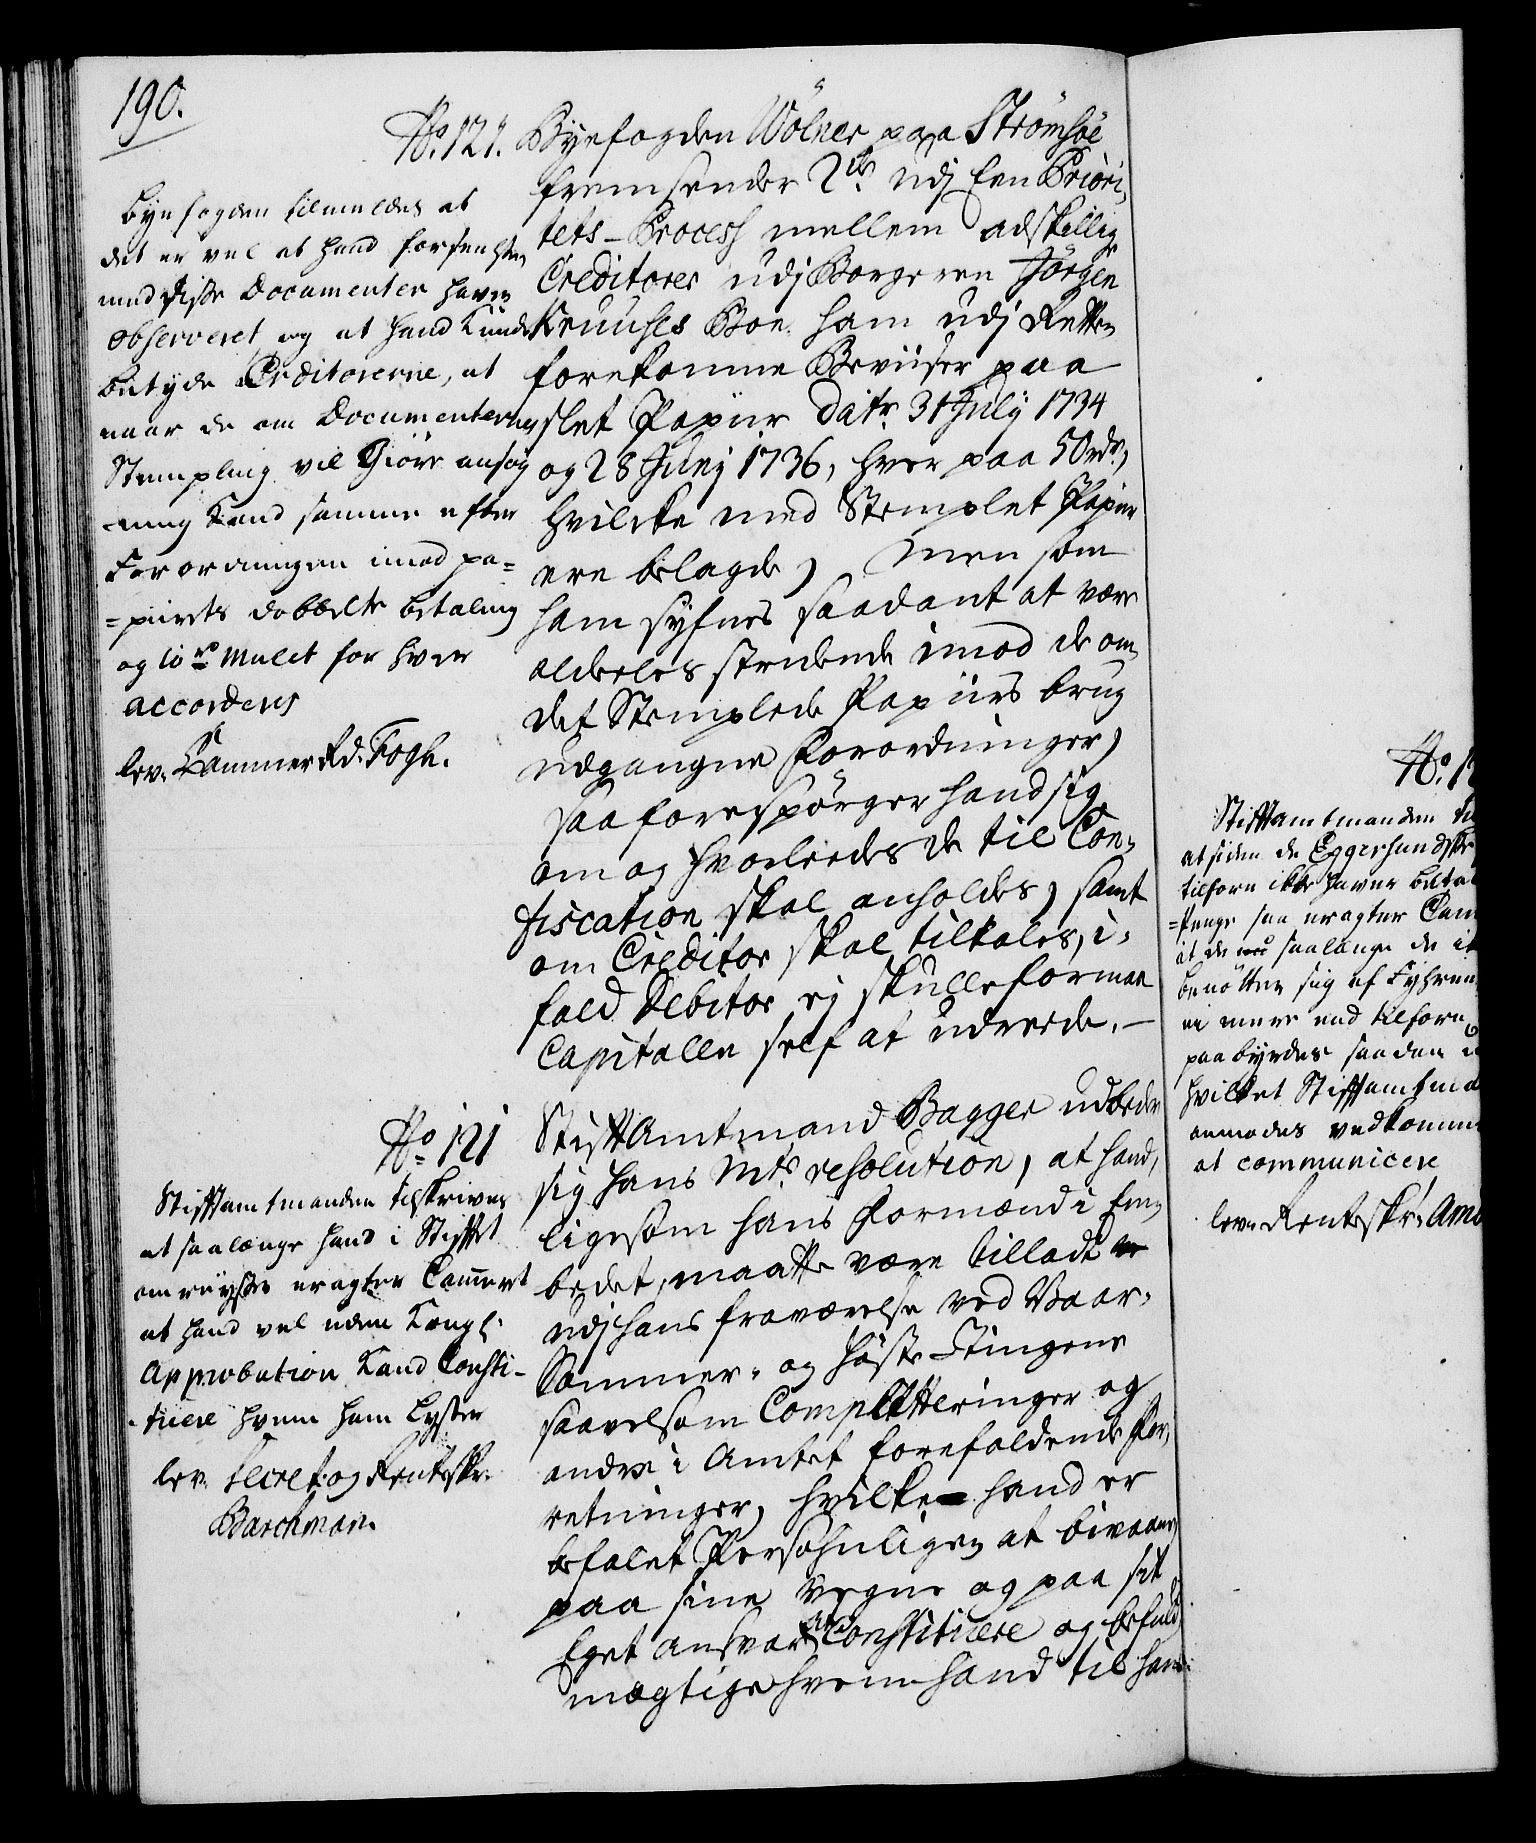 190.
No. 121.
Byefogden Wölner paa Strömsöe
fremsender 2de udj Een Priori,
tets-Process mellem adskillig
Creditorer udj Borgeren Jörgen
Kruuses Boe ham udj Retten
forekomne Beviiser paa
slet Papiir Datr. 31 July 1734
og 28 Junj 1736, hver paa 50 rdr.,
hvilcke med Stemplet Papiir
ere belagde, Men som
ham synes saadant at være
aldeeles stridende imod de om
det Stemplede Papiirs brug
udgangne Forordninger,
saa forespörger hand sig
om og hvorleedes de til Con-
fiscation skal anholdes, samt
om Creditor skal tiltales, i-
fald Debitor ej skulle formaa
Capitalen self at udreede.-
Byefogden tilmeldes at
det er vel at hand forseelsen
med disse Documenter haver
observeret og at hand Kunde
betyde Creditorerne, at
naar de om Documenternes
Stempling vil Giöre ansög
-ning Kand samme efter
Forordningen imod pa=
=piirets dobbelte betaling
og 10 rd Mulct for hver
accorderes
lev. Kammer Rd. Fogh.
No 121
StiftAmtmand Bagger udbeder
sig Hans Mts. resolution, at hand,
ligesom hans Formænd i Em-
bedet, maatte være tilladt
udj hans fraværelse ved Vaar-
Sommer- og Höste-Tingene
saavelsom Completteringer og
andre i Amtet forefaldende For,
retninger, hvilke hand er
befalet Persohnligen at bivaane,
paa sine vegne og paa sit
Eget ansvar at Constituere og befuld
mægtige hvem hand til han
Stiftamtmanden tilskrives
at saalænge hand i Stiftet
omreyser eragter Cammeret
at hand vel uden Kongl.
Approbation Kand Consti-
-tuere hvem ham Lyster
lev. Secret. og Renteskr.
Barchman.
No. 1
Stiftamtmanden til
at siden de Eggersundske
tilforn ikke haver betal
=Penge saa eragter Cam
at de saalænge de ik
benötter sig af Fyhren
ei mere end tilforn
paabyrdes saadan
hvilket Stiftamtma
anmodes vedkomme
at communicere
lev. Renteskr. Am